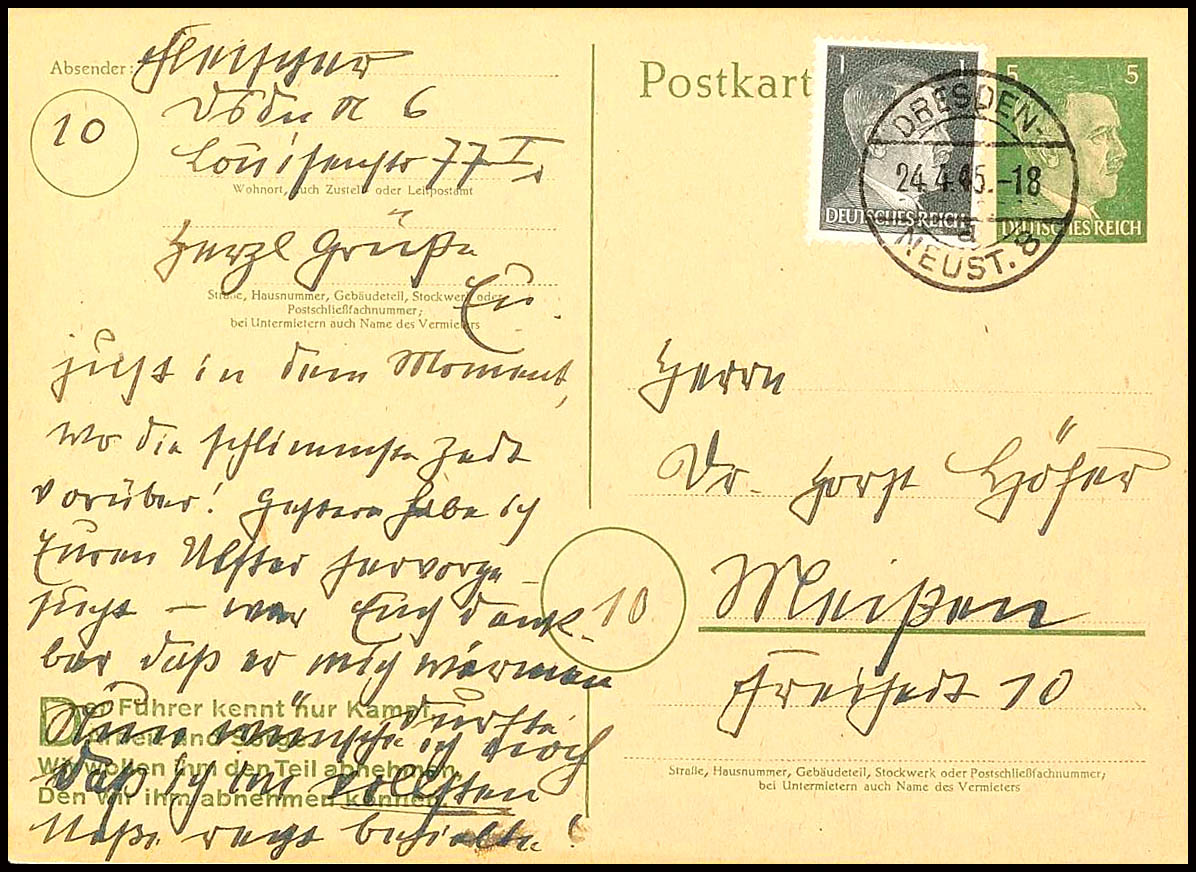 Absender: Fleischer
Dsdn N 6
10
Louisenstr 77 I.
Wohnort, auch Zustell- oder Leitpostamt
Herzl Grüße
Straße, Hausnummer, Gebäudeteil, Stockwerk oder
Postschließfachnummer;
bei Untermietern auch Name des Vermieters
Eu.
jetzt in dem Moment,
wo die schlimmste Zeit
vorüber! Gestern habe ich
Euren Ulster hervorge-
sucht – war Euch dank-
bar daß er mich wärmen
durfte.
Nun wünsche ich noch
daß ich im vollsten
Maße recht behielte!
Der Führer kennt nur Kampf,
Arbeit und Sorge.
Wir wollen ihm den Teil abnehmen,
Den wir ihm abnehmen können.
Postkart
1 1
DEUTSCHES REICH
5 5
DEUTSCHES REICH
DRESDEN-
24.4.45.-18
a
NEUST. 8
Herrn
Dr. Horst Höfer
10
Meißen
Freiheit 10
Straße, Hausnummer, Gebäudeteil, Stockwerk oder Postschließfachnummer;
bei Untermietern auch Name des Vermieters